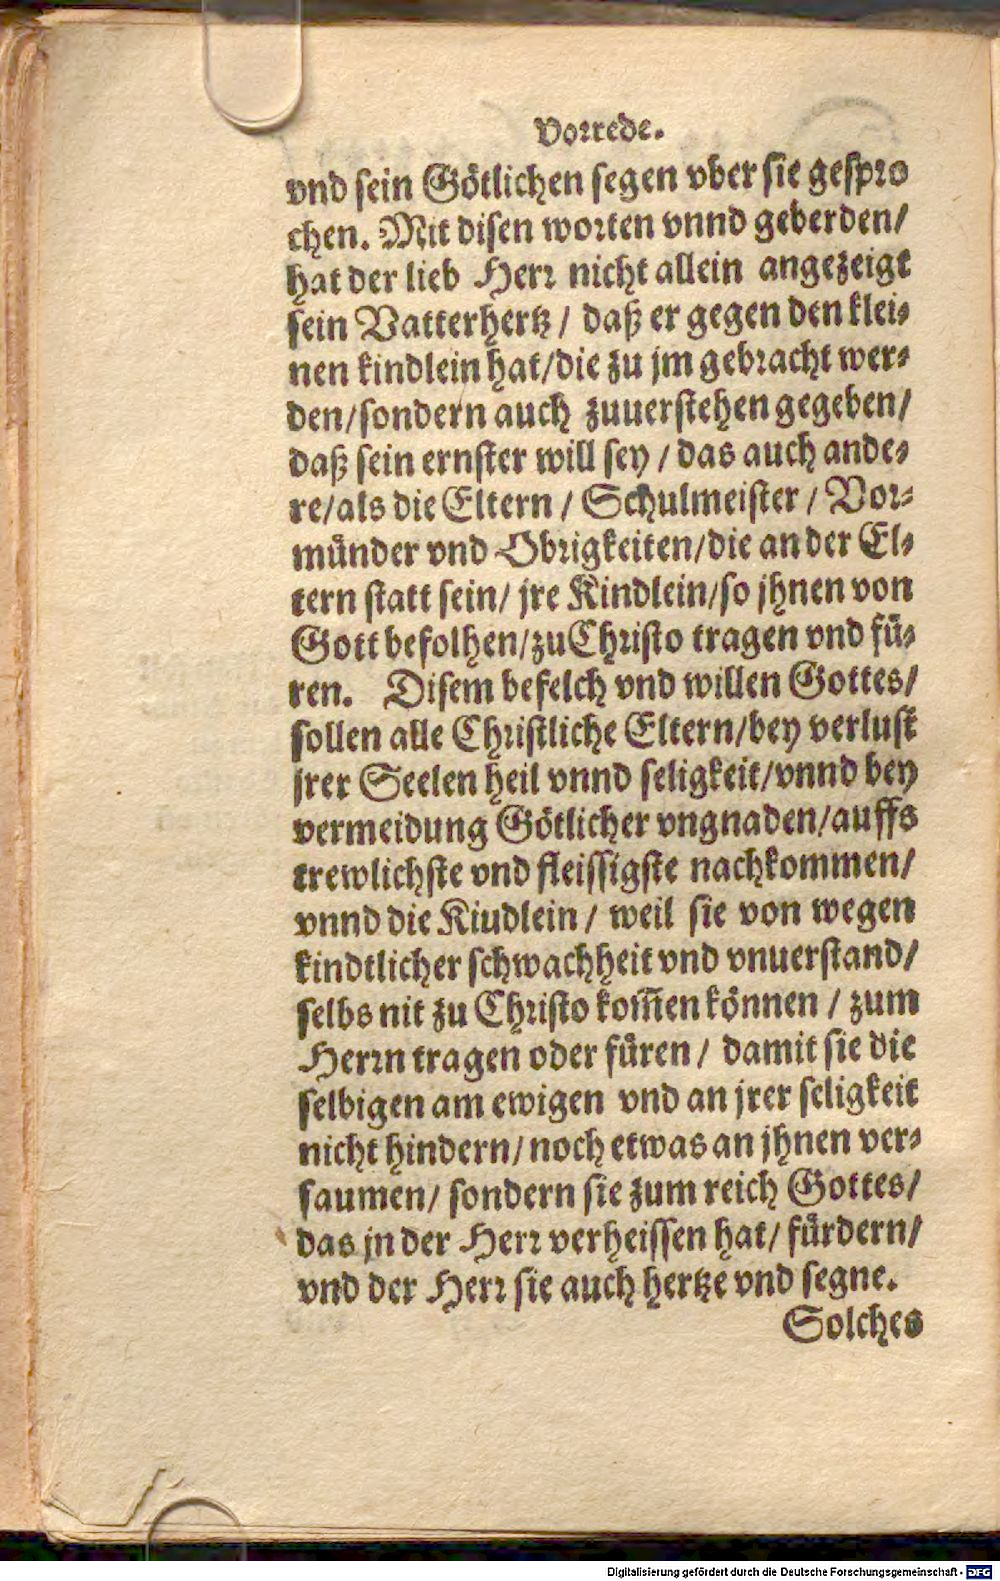 Vorrede.
vnd sein Götlichen segen vber sie gespro
chen. Mit disen worten vnnd geberden/
hat der lieb Herr nicht allein angezeigt
sein Vatterhertz / daß er gegen den klei-
nen kindlein hat/die zu jm gebracht wer-
den/sondern auch zuuerstehen gegeben/
daß sein ernster will sey / das auch ande-
re/als die Eltern / Schulmeister / Vor-
münder vnd Obrigkeiten/die an der El-
tern statt sein/ jre Kindlein/so jhnen von
Gott befolhen/zu Christo tragen vnd fü-
ren. Disem befelch vnd willen Gottes/
sollen alle Christliche Eltern/bey verlust
jrer Seelen heil vnnd seligkeit/vnnd bey
vermeidung Götlicher vngnaden/auffs
trewlichste vnd fleissigste nachkommen/
vnnd die Kiudlein / weil sie von wegen
kindtlicher schwachheit vnd vnuerstand/
selbs nit zu Christo kom̅en können / zum
Herrn tragen oder füren / damit sie die
selbigen am ewigen vnd an jrer seligkeit
nicht hindern/noch etwas an jhnen ver-
saumen/ sondern sie zum reich Gottes/
das jn der Herr verheissen hat/ fürdern/
vnd der Herr sie auch hertze vnd segne.
Solches
Digitalisierung gefördert durch die Deutsche Forschungsgemeinschaft - DFG